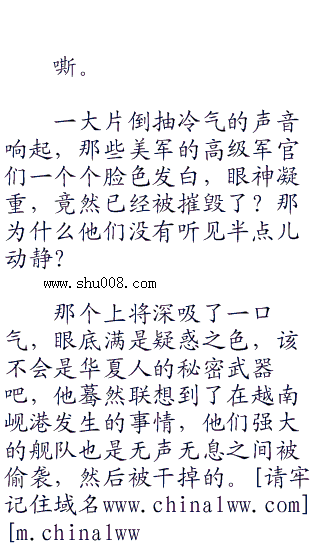 嘶。
一大片倒抽冷气的声音
响起，那些美军的高级军官
们一个个脸色发白，眼神凝
重，竟然已经被摧毁了？那
为什么他们没有听见半点儿
动静？
www.shu008.com
那个上将深吸了一口
气，眼底满是疑惑之色，该
不会是华夏人的秘密武器
吧，他蓦然联想到了在越南
岘港发生的事情，他们强大
的舰队也是无声无息之间被
偷袭，然后被干掉的。[请牢
记住域名www.china1ww.com]
[m.china1ww